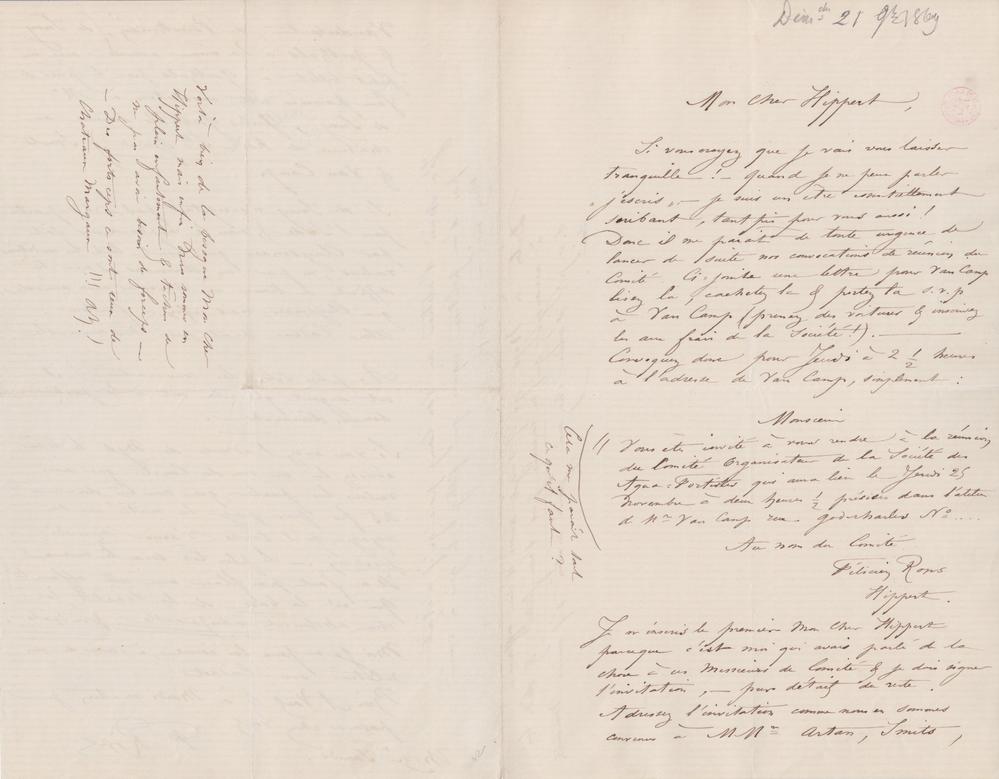 Dim^che 21 9^bre 1869
Mon cher Hippert,
Si vous croyez que je vais vous laisser
tranquille ! — quand je ne peux parler
"j'escris," — je suis un être essentiellement
scribant, tant pis pour vous aussi !
Donc il me paraît de toute urgence de
lancer de suite nos convocations de réunion du
Comité. Ci-jointe une lettre pour Van Camp
lisez la, cachetez la & portez la s.v.p
à Van Camp (prenez des voitures & inscrivez
les aux frais de la Société !). —
Convoquez donc pour Jeudi à 2 ½ heures
à l'adresse de Van Camp, simplement :
Monsieur
!! Vous êtes invité à vous rendre à la réunion
du Comité Organisateur de la Société des
Aqua-Fortistes qui aura lieu le Jeudi 25
Novembre à deux heures ½ précises dans l'atelier
de Mr Van Camp rue godecharles No ....
Au nom du Comité
Félicien Rops
Hippert.
Je m'inscris le premier Mon Cher Hippert
parceque c'est moi qui avais parlé de la
chose à ces Messieurs du Comité & je dois signer
l'invitation, — pur détail de reste.
Adressez l'invitation comme nous en sommes
convenus à MMrs Artan, Smits,
Cela me paraît tout
ce qu'il faut ?
Voilà bien de la besogne Mon Cher
Hippert mais enfin nous sommes en
plein enfantement & tâchons de
ne pas avoir besoin de forceps —
— Des forceps ce sont ceux de
Chateaux Margaux !!!